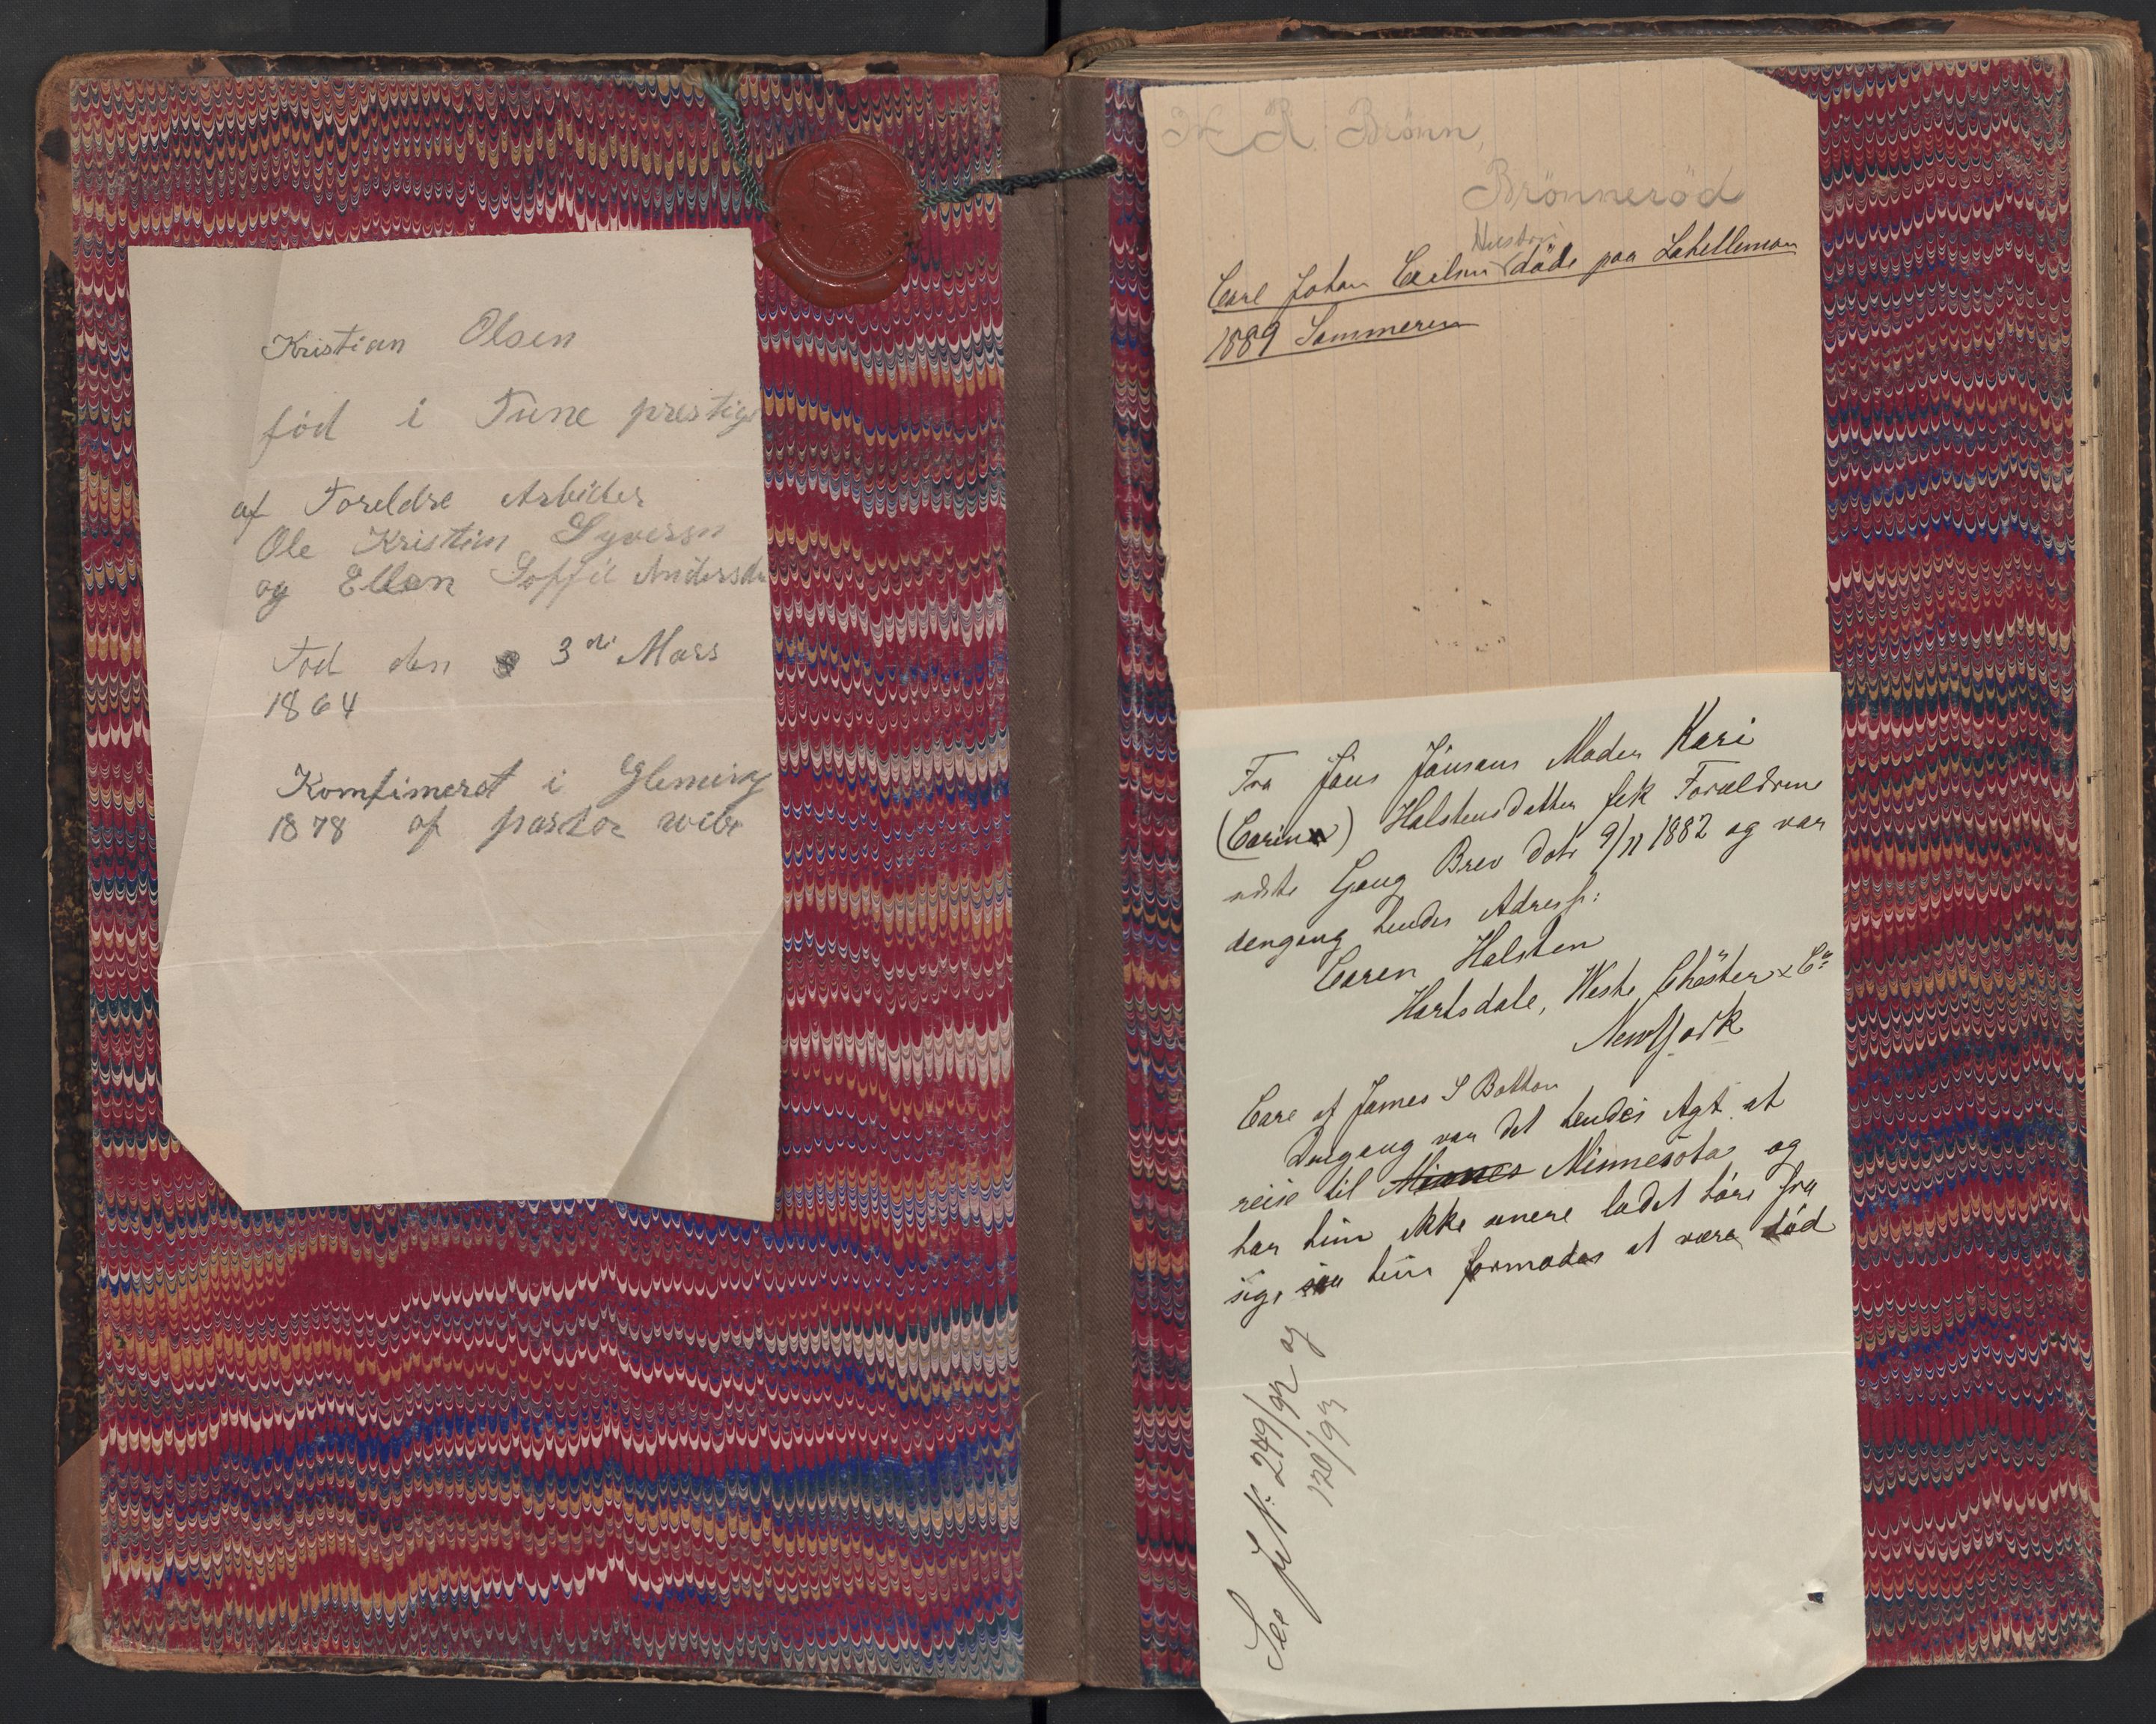 Kristian Olsen
fød i Tune prestig
af Foreldre Arbeider
Ole Kristian Syversn
og Ellen Soffie Andersda
Fød den 3de Mars
1864
Komfimeret i Gleming
1878 af pastor wibe
R. Brönn,
Brönneröd
Hustru
Carl Johan döde paa
1889 Sommeren
Fra Jöns Jönsens Moder Kari
(Carina) Halstensdatter fik Forældrene
sidste Gang Brev dat 9/11 1882 og var
dengang hendes Adresse:
Caren Halsten
Hartsdale, Weste Chester Co
New York
Care of James S Botton
Dengang var det hendes Agt at
reise til Minnes Minnesota og
har hun ikke senere ladet höre fra
sig, saa hun formodes at være död
See JN: 249/92 og
120/93